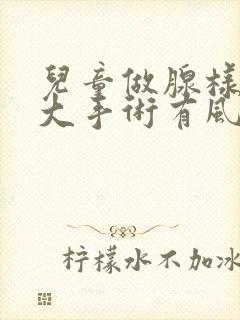 兒童做腺樣
大手術有風
柠檬水不加冰